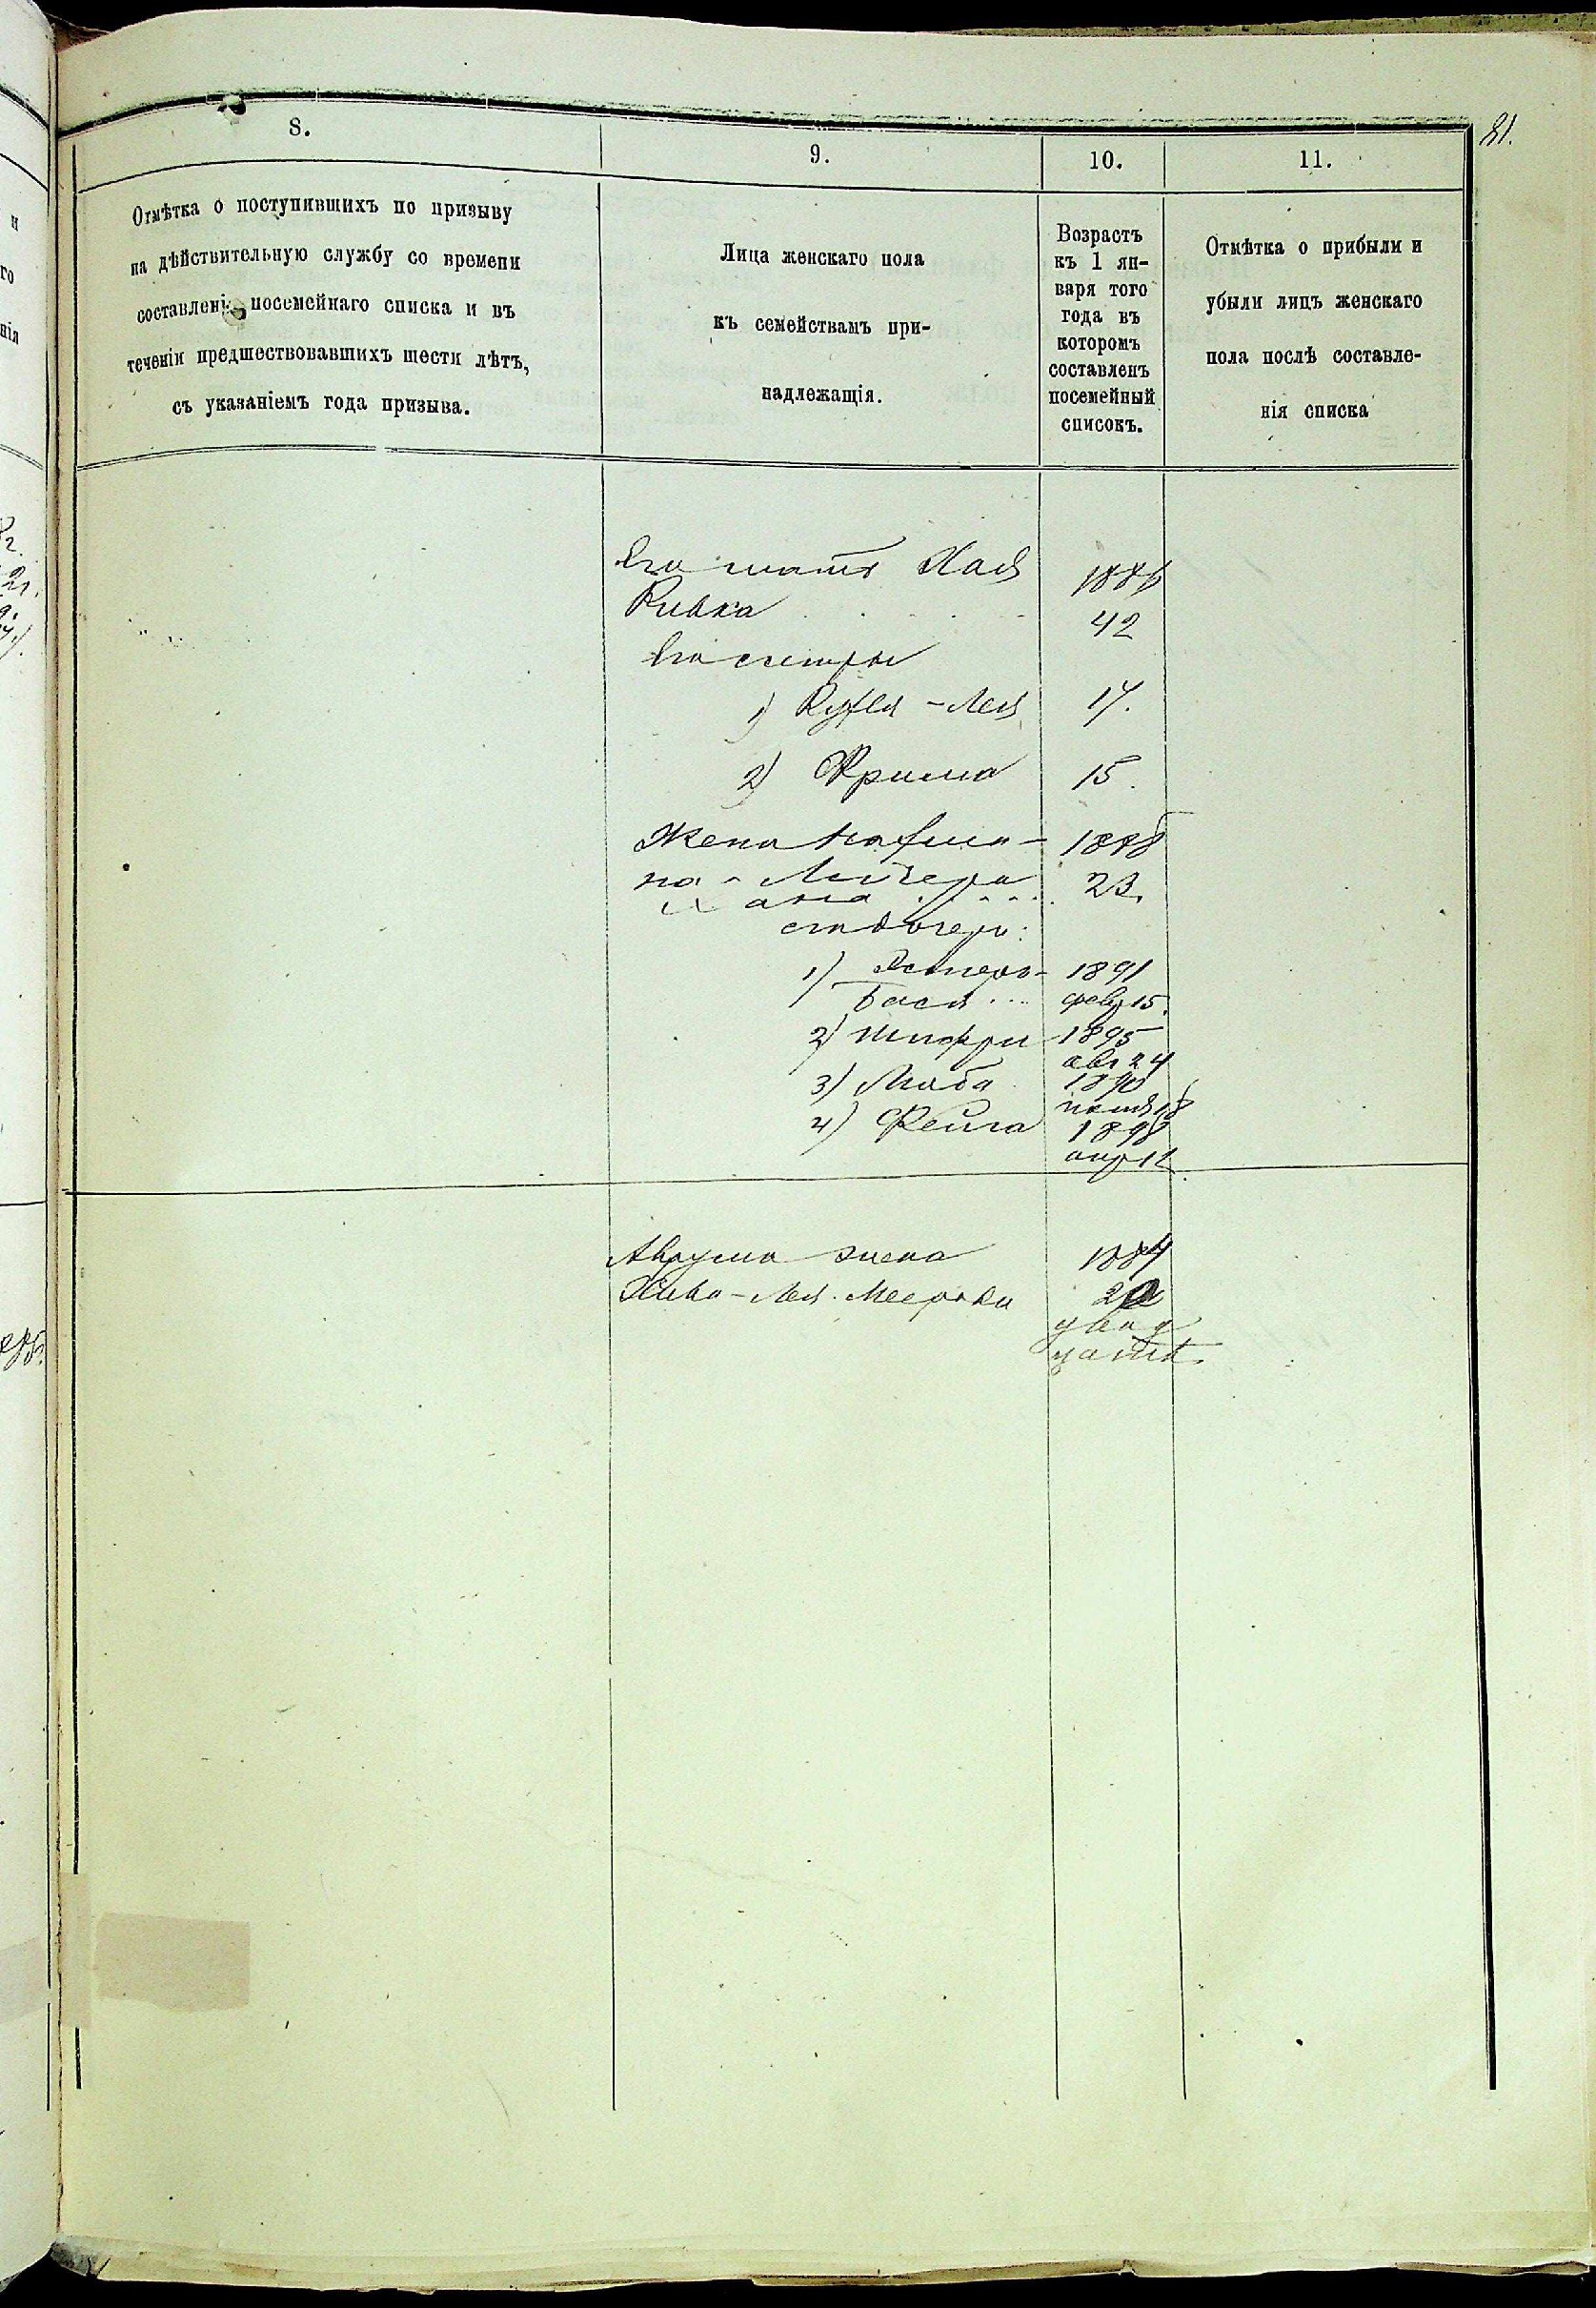 81.
8.
9.
10.
11.
Отмѣтка о поступившихъ по призыву
на дѣйствительную службу со времени
составленія посемейнаго списка и въ
теченіи предшествовавшихъ шести лѣтъ,
съ указаніемъ года призыва.
Лица женскаго пола
къ семействамъ при-
надлежащія.
Возрастъ
къ 1 ян-
варя того
года въ
которомъ
составленъ
посемейный
списокъ.
Отмѣтка о прибыли и
убыли лицъ женскаго
пола послѣ составле-
нія списка
Его мать Хая
Ривка 42
Его сестры
1) -Лея 17.
2) Фрима 15.
Жена Нафма-
на - 23.
Хана
его дочери:
1) Эстеръ- 1891
Бася фев 15.
2) Шифри 1895
авг 24
3) Люба
4) Фейга 1898
апр 12
Аврума жена 1884
Хива-Лея Меерова 20
двад
цать.